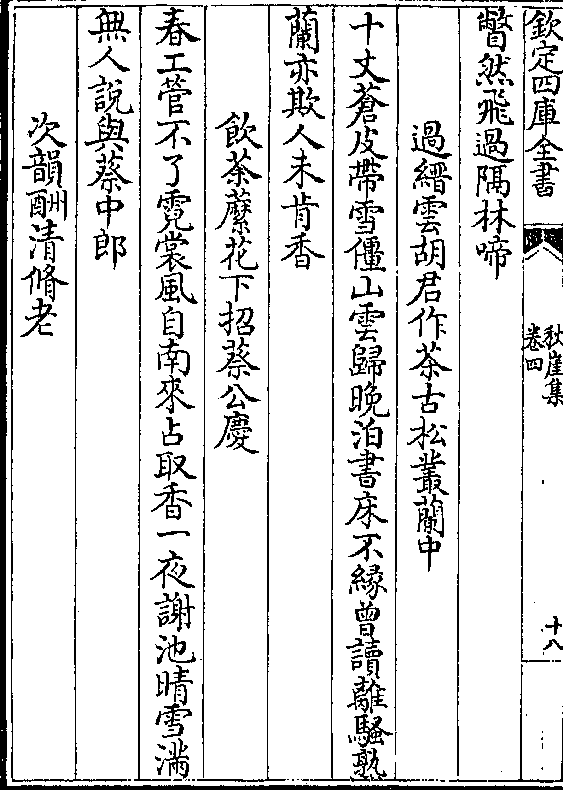 欽定四庫全書
秋崖集
卷四
十八
瞥然飛過隔林啼
過縉雲胡君作茶古松叢蘭中
十丈蒼皮帶雪僵山雲歸晚泊書床不緣曾讀離騷熟
蘭亦欺人未肯香
飲荼䕷花下招蔡公慶
春工菅不了霓裳風自南來占取香一夜謝池晴雪滿
無人說與蔡中郎
次韻酬清脩老